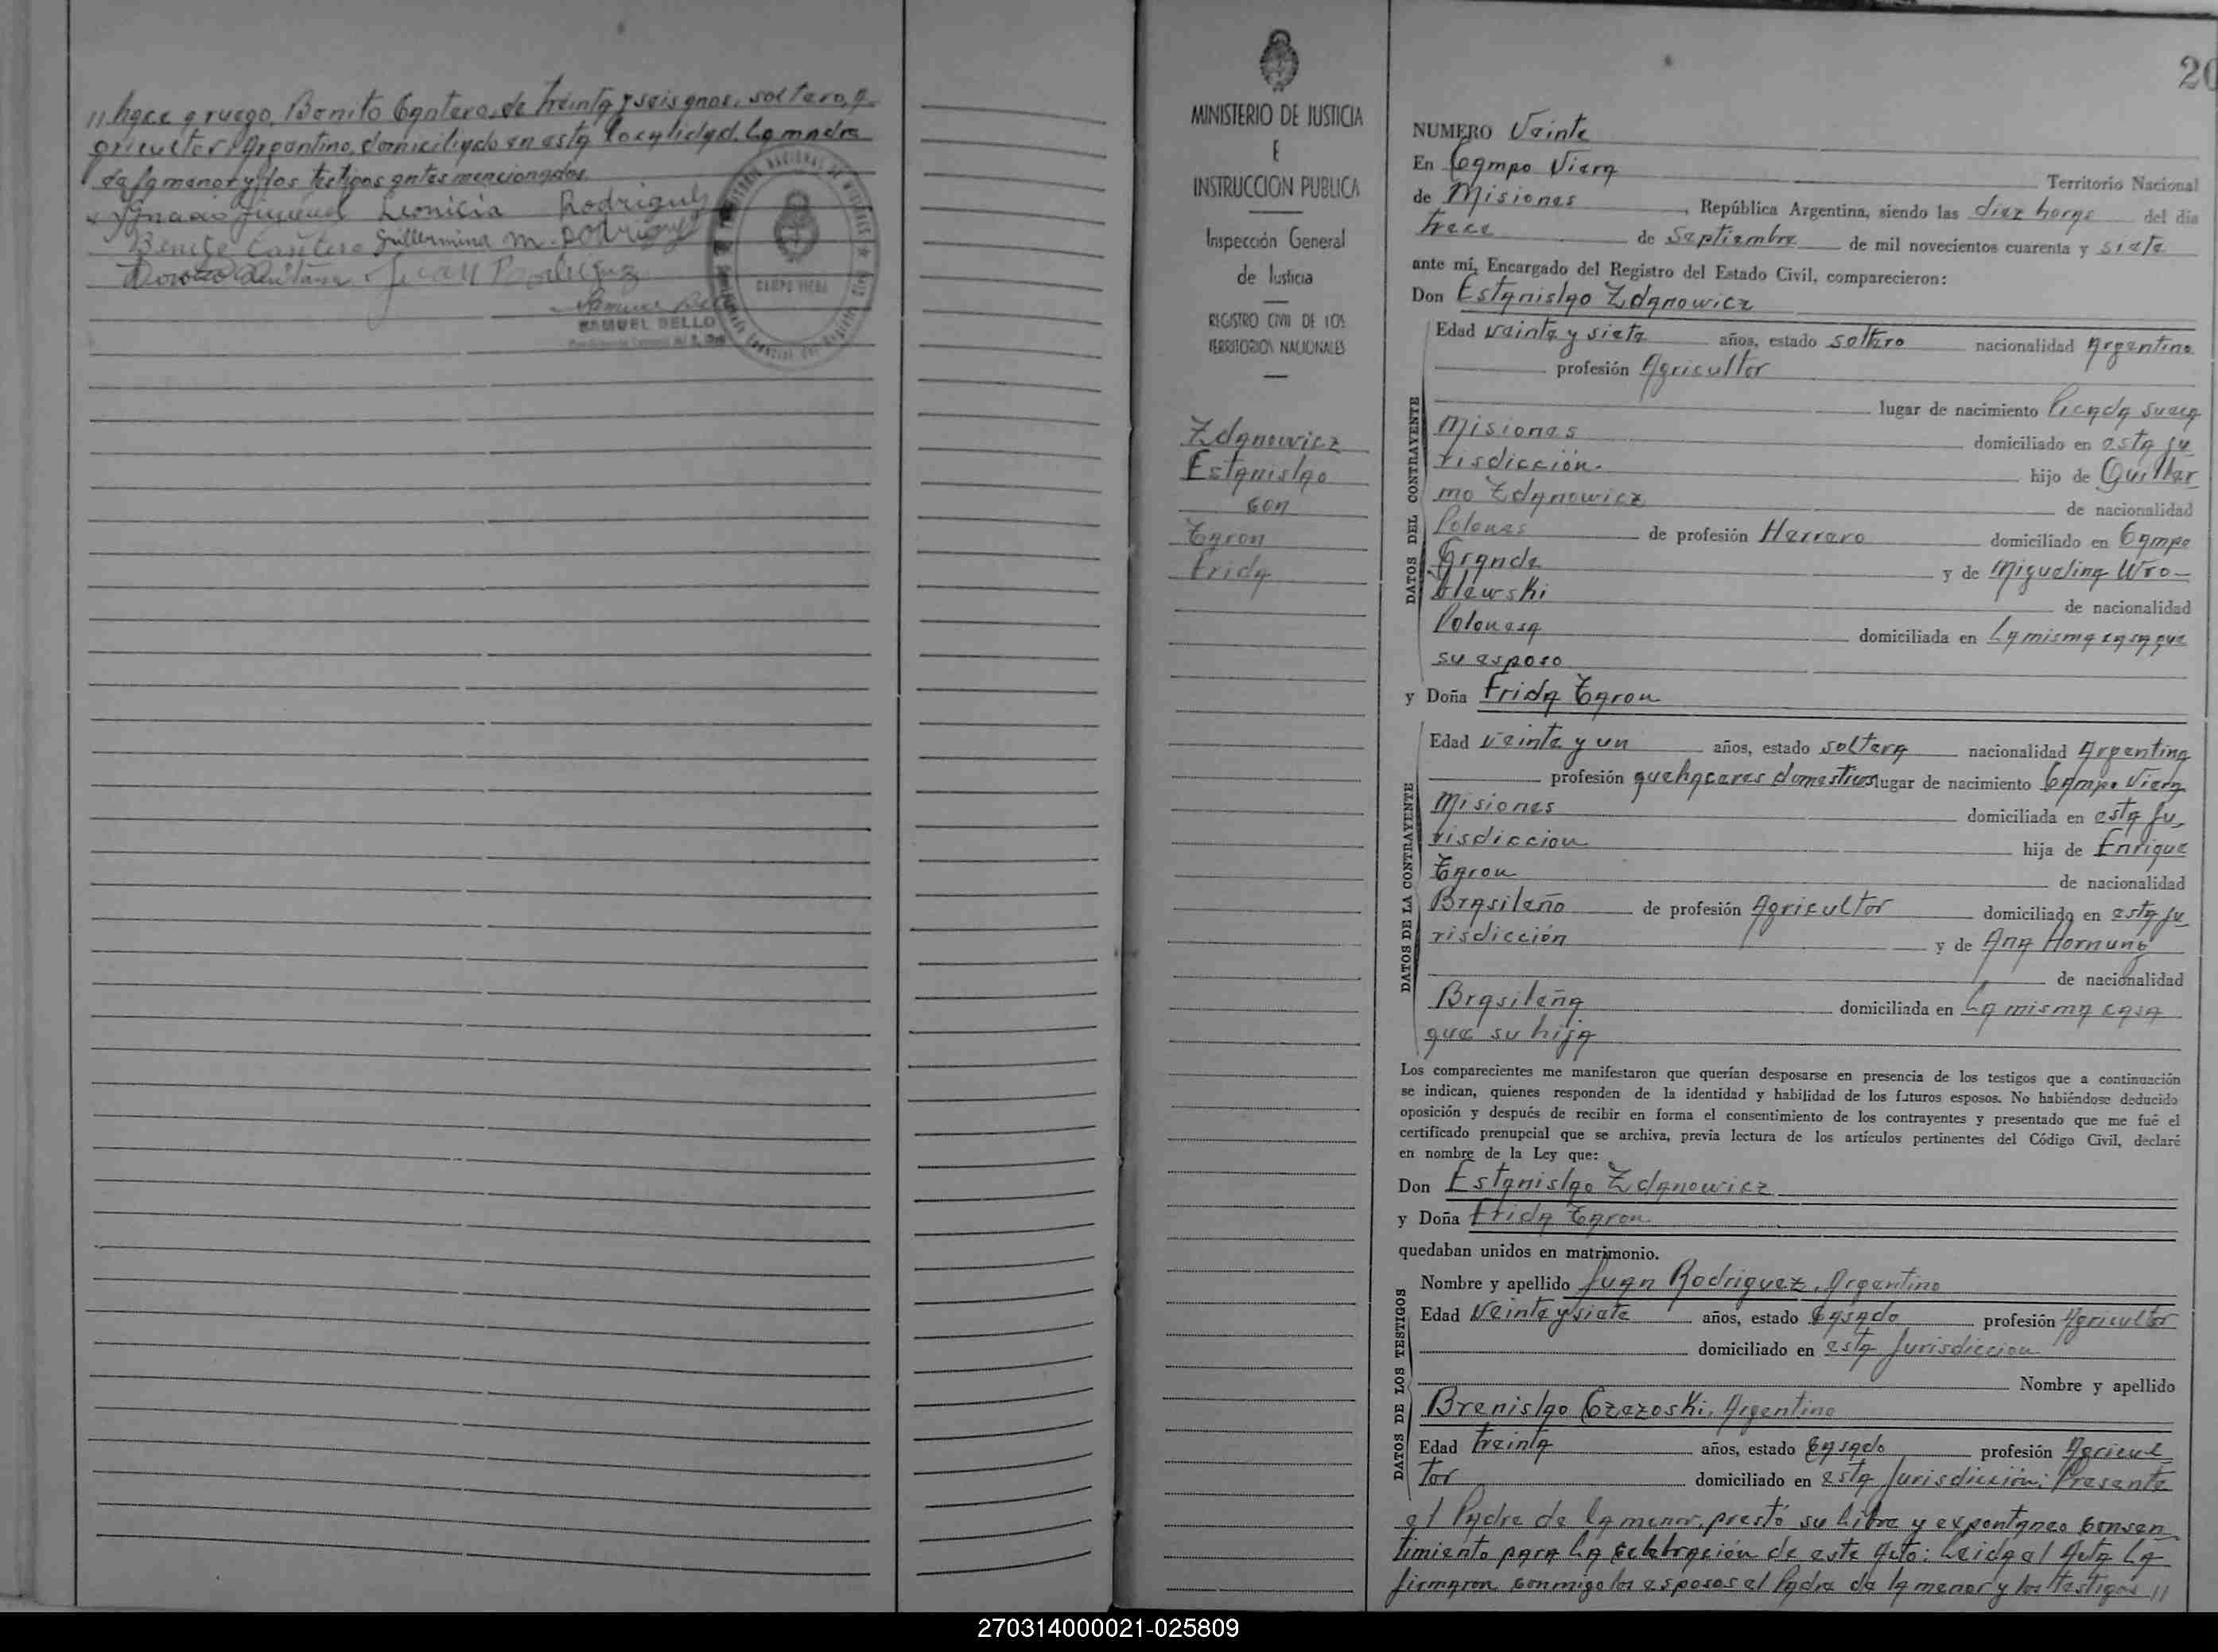 // hace a ruego, Benito Cantero, de treinta y seis años, soltero, A-
gricultor, Argentino, domiciliado en esta localidad. La madre
de la menor y los testigos antes mencionados.
Leonicia Rodriguez
Guillermina M. Rodriguez
Juan Rodriguez
SAMUEL BELLO
CAMPO VIERA
MINISTERIO DE JUSTICIA
E
INSTRUCCION PUBLICA
Inspección General
de Justicia
REGISTRO CIVIL DE LOS
TERRITORIOS NACIONALES
Zdanowicz
Estanislao
con
Caron
Frida
20
NUMERO Veinte
En Campo Viera Territorio Nacional
de Misiones, República Argentina, siendo las diez horas del día
trece de Septiembre de mil novecientos cuarenta y siete
ante mí, Encargado del Registro del Estado Civil, comparecieron:
Don Estanislao Zdanowicz
DATOS DEL CONTRAYENTE
Edad veinte y siete años, estado soltero nacionalidad Argentino
profesión Agricultor
lugar de nacimiento Picada Sueca
Misiones domiciliado en esta ju
risdicción. hijo de Guiller
mo Zdanowicz de nacionalidad
Polones de profesión Herrero domiciliado en Campo
Grande y de Miguelina Wro-
blewski de nacionalidad
Polonesa domiciliada en La misma casa que
su esposo
y Doña Frida Caron
DATOS DE LA CONTRAYENTE
Edad veinte y un años, estado soltera nacionalidad Argentina
profesión quehaceres domesticos lugar de nacimiento Campo Viera
Misiones domiciliada en esta ju,
risdiccion hija de Enrique
Caron de nacionalidad
Brasileño de profesión Agricultor domiciliado en esta ju
risdicción y de Ana Hornung
de nacionalidad
Brasileña domiciliada en La misma casa
que su hija
Los comparecientes me manifestaron que querían desposarse en presencia de los testigos que a continuación
se indican, quienes responden de la identidad y habilidad de los futuros esposos. No habiéndose deducido
oposición y después de recibir en forma el consentimiento de los contrayentes y presentado que me fué el
certificado prenupcial que se archiva, previa lectura de los artículos pertinentes del Código Civil, declaré
en nombre de la Ley que:
Don Estanislao Zdanowicz
y Doña Frida Caron
quedaban unidos en matrimonio.
DATOS DE LOS TESTIGOS
Nombre y apellido Juan Rodriguez, Argentino
Edad Veinte y siete años, estado Casado profesión Agricultor
domiciliado en esta Jurisdiccion
Nombre y apellido
Brenislao Czezoski, Argentino
Edad treinta años, estado Casado profesión Agricul-
tor domiciliado en esta Jurisdicción: Presente
el Padre de la menor, prestó su libre y expontaneo consen
timiento para la celebración de este Acto: Leida el Acta La
firmaron conmigo los esposos el Padre de la menor y los testigos //
270314000021-025809